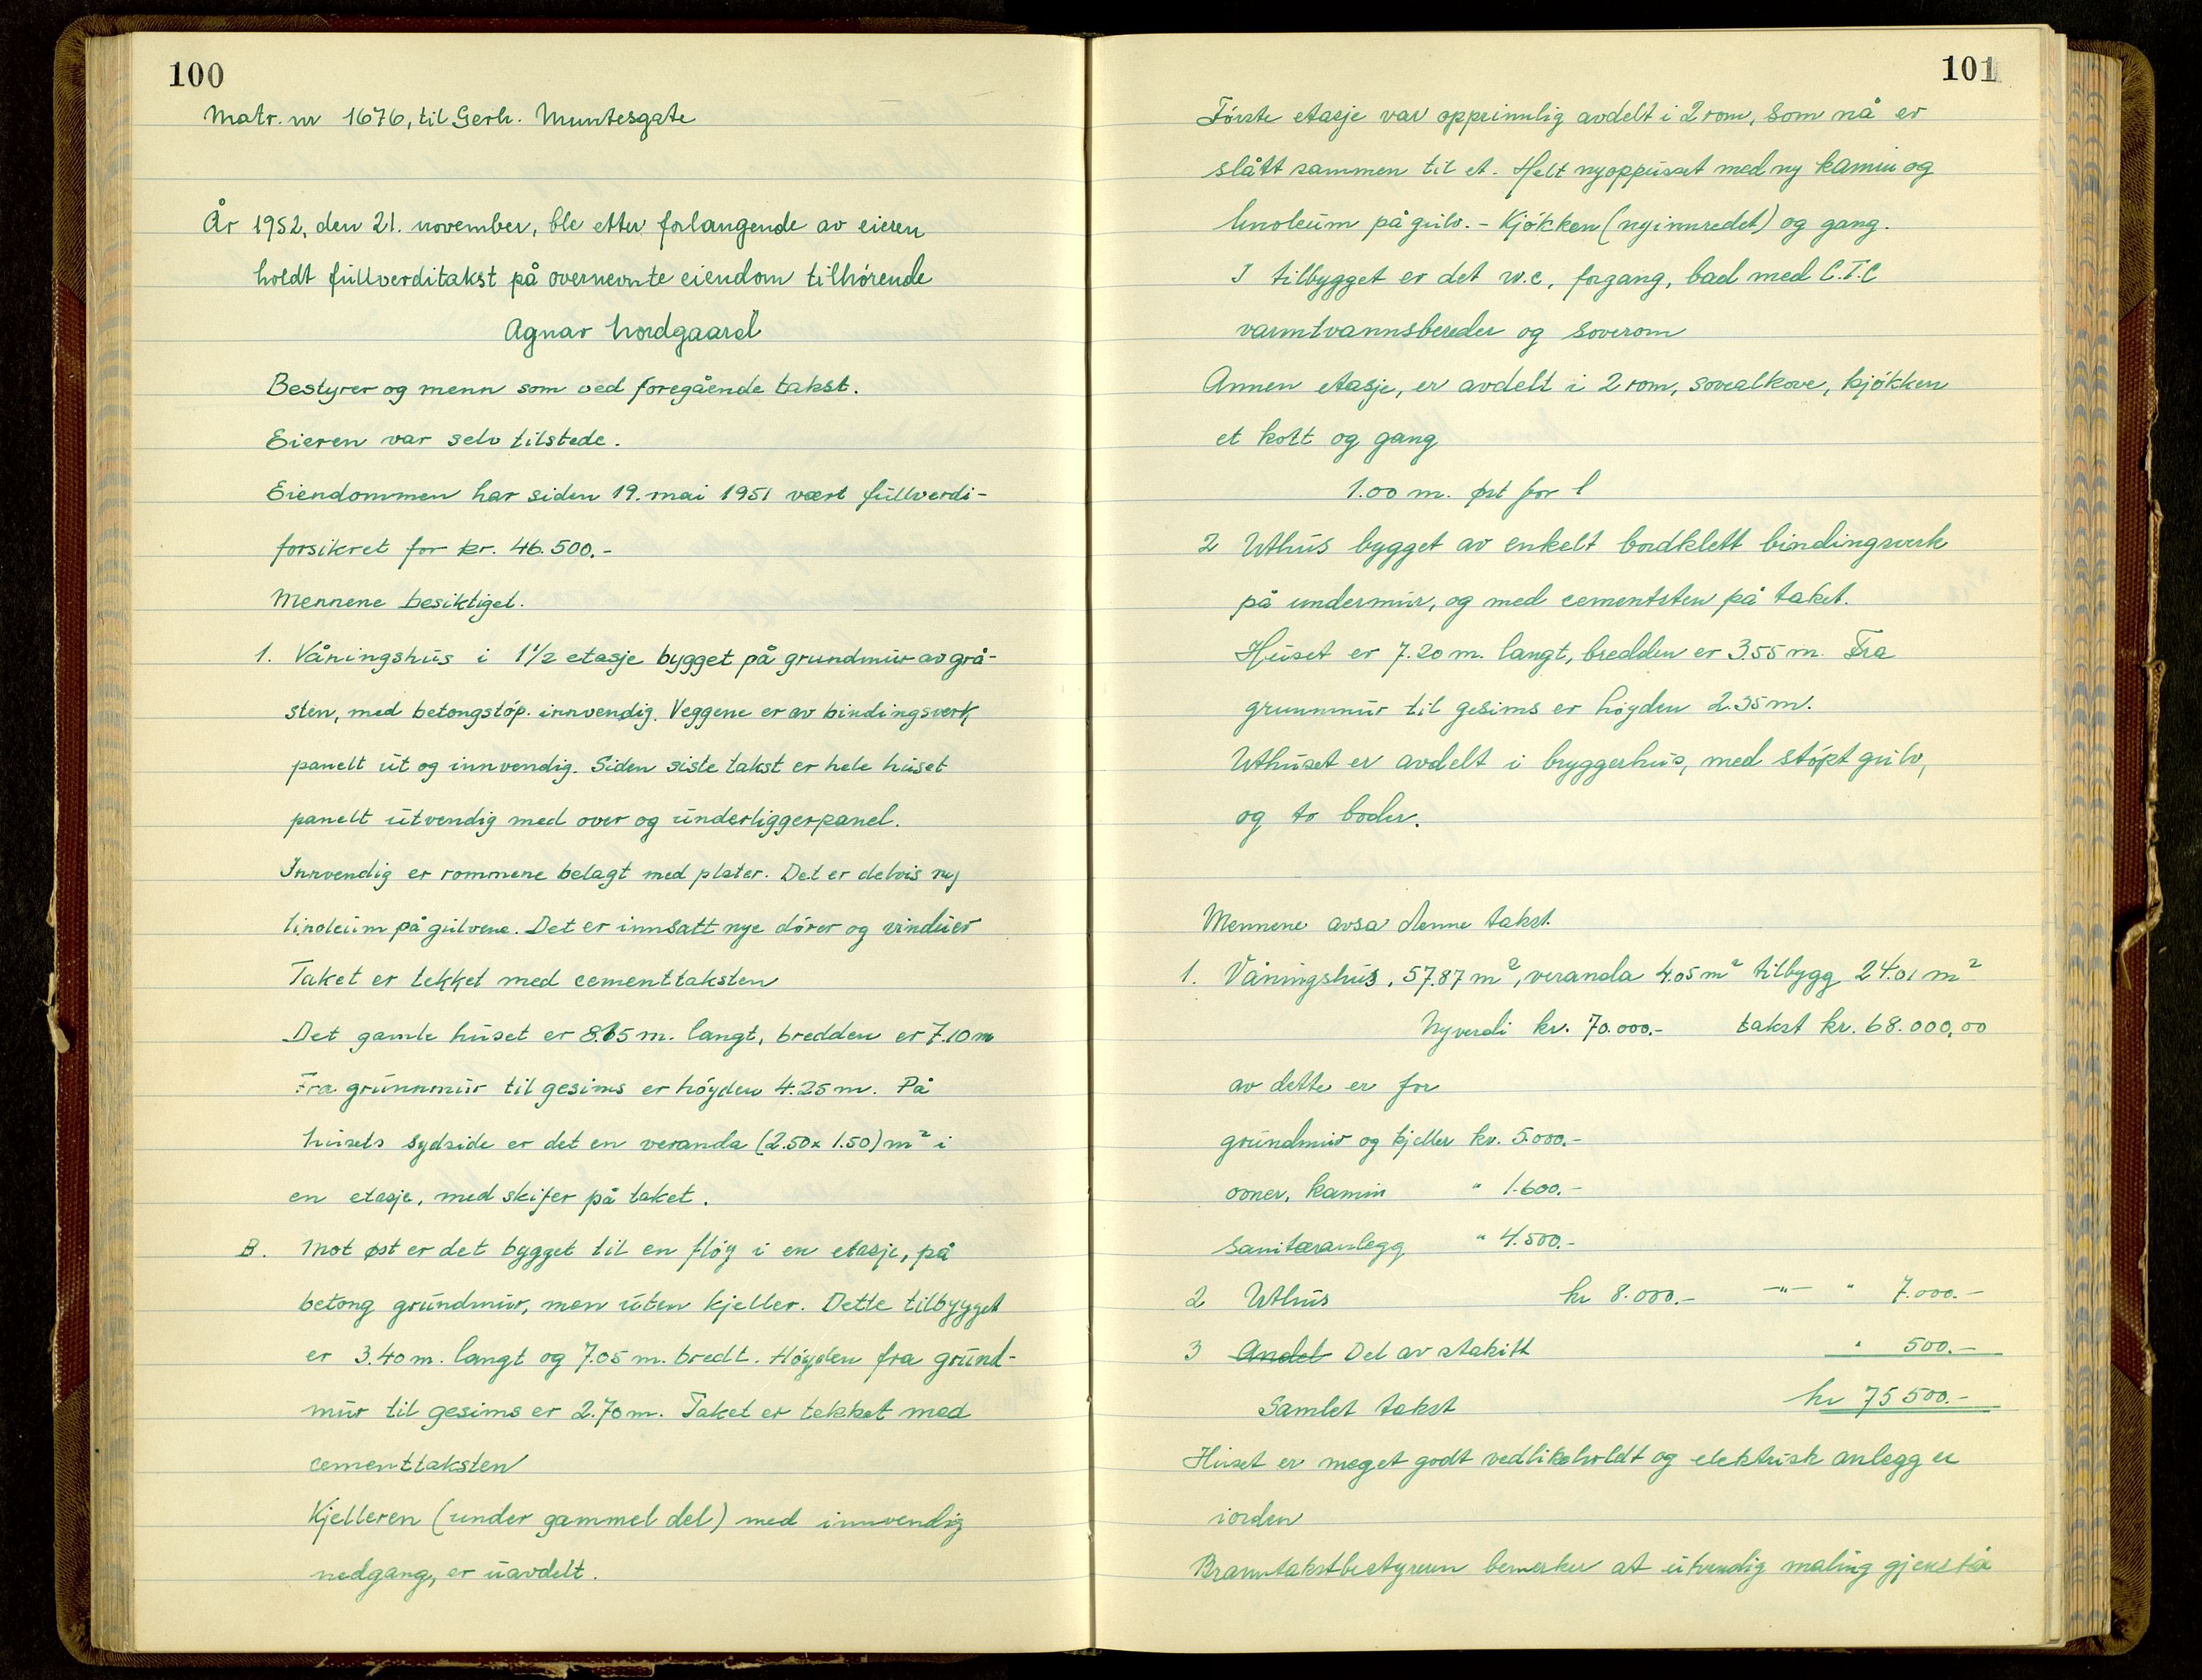 100
Matr. nr 1676, til Gerh. Muntesgate
År 1952, den 21. november, ble etter forlangende av eieren
holdt fullverditakst på overnevnte eiendom tilhørende
Agnar Nordgaard
Bestyrer og menn som ved foregående takst.
Eieren var selv tilstede.
Eiendommen har siden 19. mai 1951 vært fullverdi-
forsikret for kr. 46.500.-
Mennene besiktiget.
1. Våningshus i 1 1/2 etasje bygget på grundmur av grå-
sten, med betongstøp. innvendig. Veggene er av bindingsverk
panelt ut og innvendig. Siden siste takst er hele huset
panelt utvendig med over og underliggerpanel.
Innvendig er rommene belagt med plater. Det er delvis ny
linoleum på gulvene. Det er innsatt nye dører og vinduer
Taket er tekket med cementtaksten
Det gamle huset er 8.15 m. langt, bredden er 7.10 m
Fra grunnmur til gesims er høyden 4.25 m. På
husets sydside er det en veranda (2.50 x 1.50) m² i
en etasje, med skifer på taket.
B. Mot øst er det bygget til en fløy i en etasje, på
betong grundmur, men uten kjeller. Dette tilbygget
er 3.40 m. langt og 7.05 m. bredt. Høyden fra grund-
mur til gesims er 2.70 m. Taket er tekket med
cementtaksten
Kjelleren (under gammel del) med innvendig
nedgang, er uavdelt.
101
Første etasje var opprinnlig avdelt i 2 rom, som nå er
slått sammen til et. Helt nyoppusset med ny kamin og
linoleum på gulv. - Kjøkken (nyinnredet) og gang.
I tilbygget er det w.c, forgang, bad med C.T.C
varmtvannsbereder og soverom
Annen etasje, er avdelt i 2 rom, sovealkove, kjøkken
et kott og gang
1.00 m. øst for 1
2 Uthus bygget av enkelt bordklett bindingsverk
på undermur, og med cementsten på taket.
Huset er 7.20 m. langt, bredden er 3.55 m. Fra
grunnmur til gesims er høyden 2.35 m.
Uthuset er avdelt i bryggerhus, med støpt gulv,
og to boder.
Mennene avsa denne takst.
1. Våningshus, 57.87 m², veranda 4.05 m² tilbygg 24.01 m²
Nyverdi kr. 70.000.- takst kr. 68.000,00
av dette er for
grundmur og kjeller kr. 5.000.-
ovner, kamin " 1.600.-
Sanitæranlegg " 4.500.-
2 Uthus kr 8.000.- -"- " 7.000.-
3 Andel Del av stakitt " 500.-
Samlet takst kr 75 500.-
Huset er meget godt vedlikeholdt og elektrisk anlegg er
iorden
Branntakstbestyreren bemerker at utvendig maling gjenstår